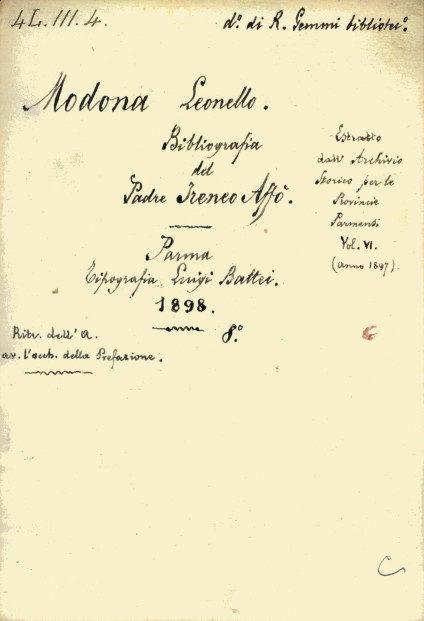 4L. III. 4.
d°. di R. Gemmi bibliotec°.
Modona Leonello.
Bibliografia
del
Padre Ireneo Affò.
Parma
Tipografia Luigi Battei.
1898.
8.°
Estratto
dall' Archivio
Storico per le
Provincie
Parmensi
Vol. VI.
(anno 1897).
Ritr. dell' A.
av. l' della Prefazione.
C